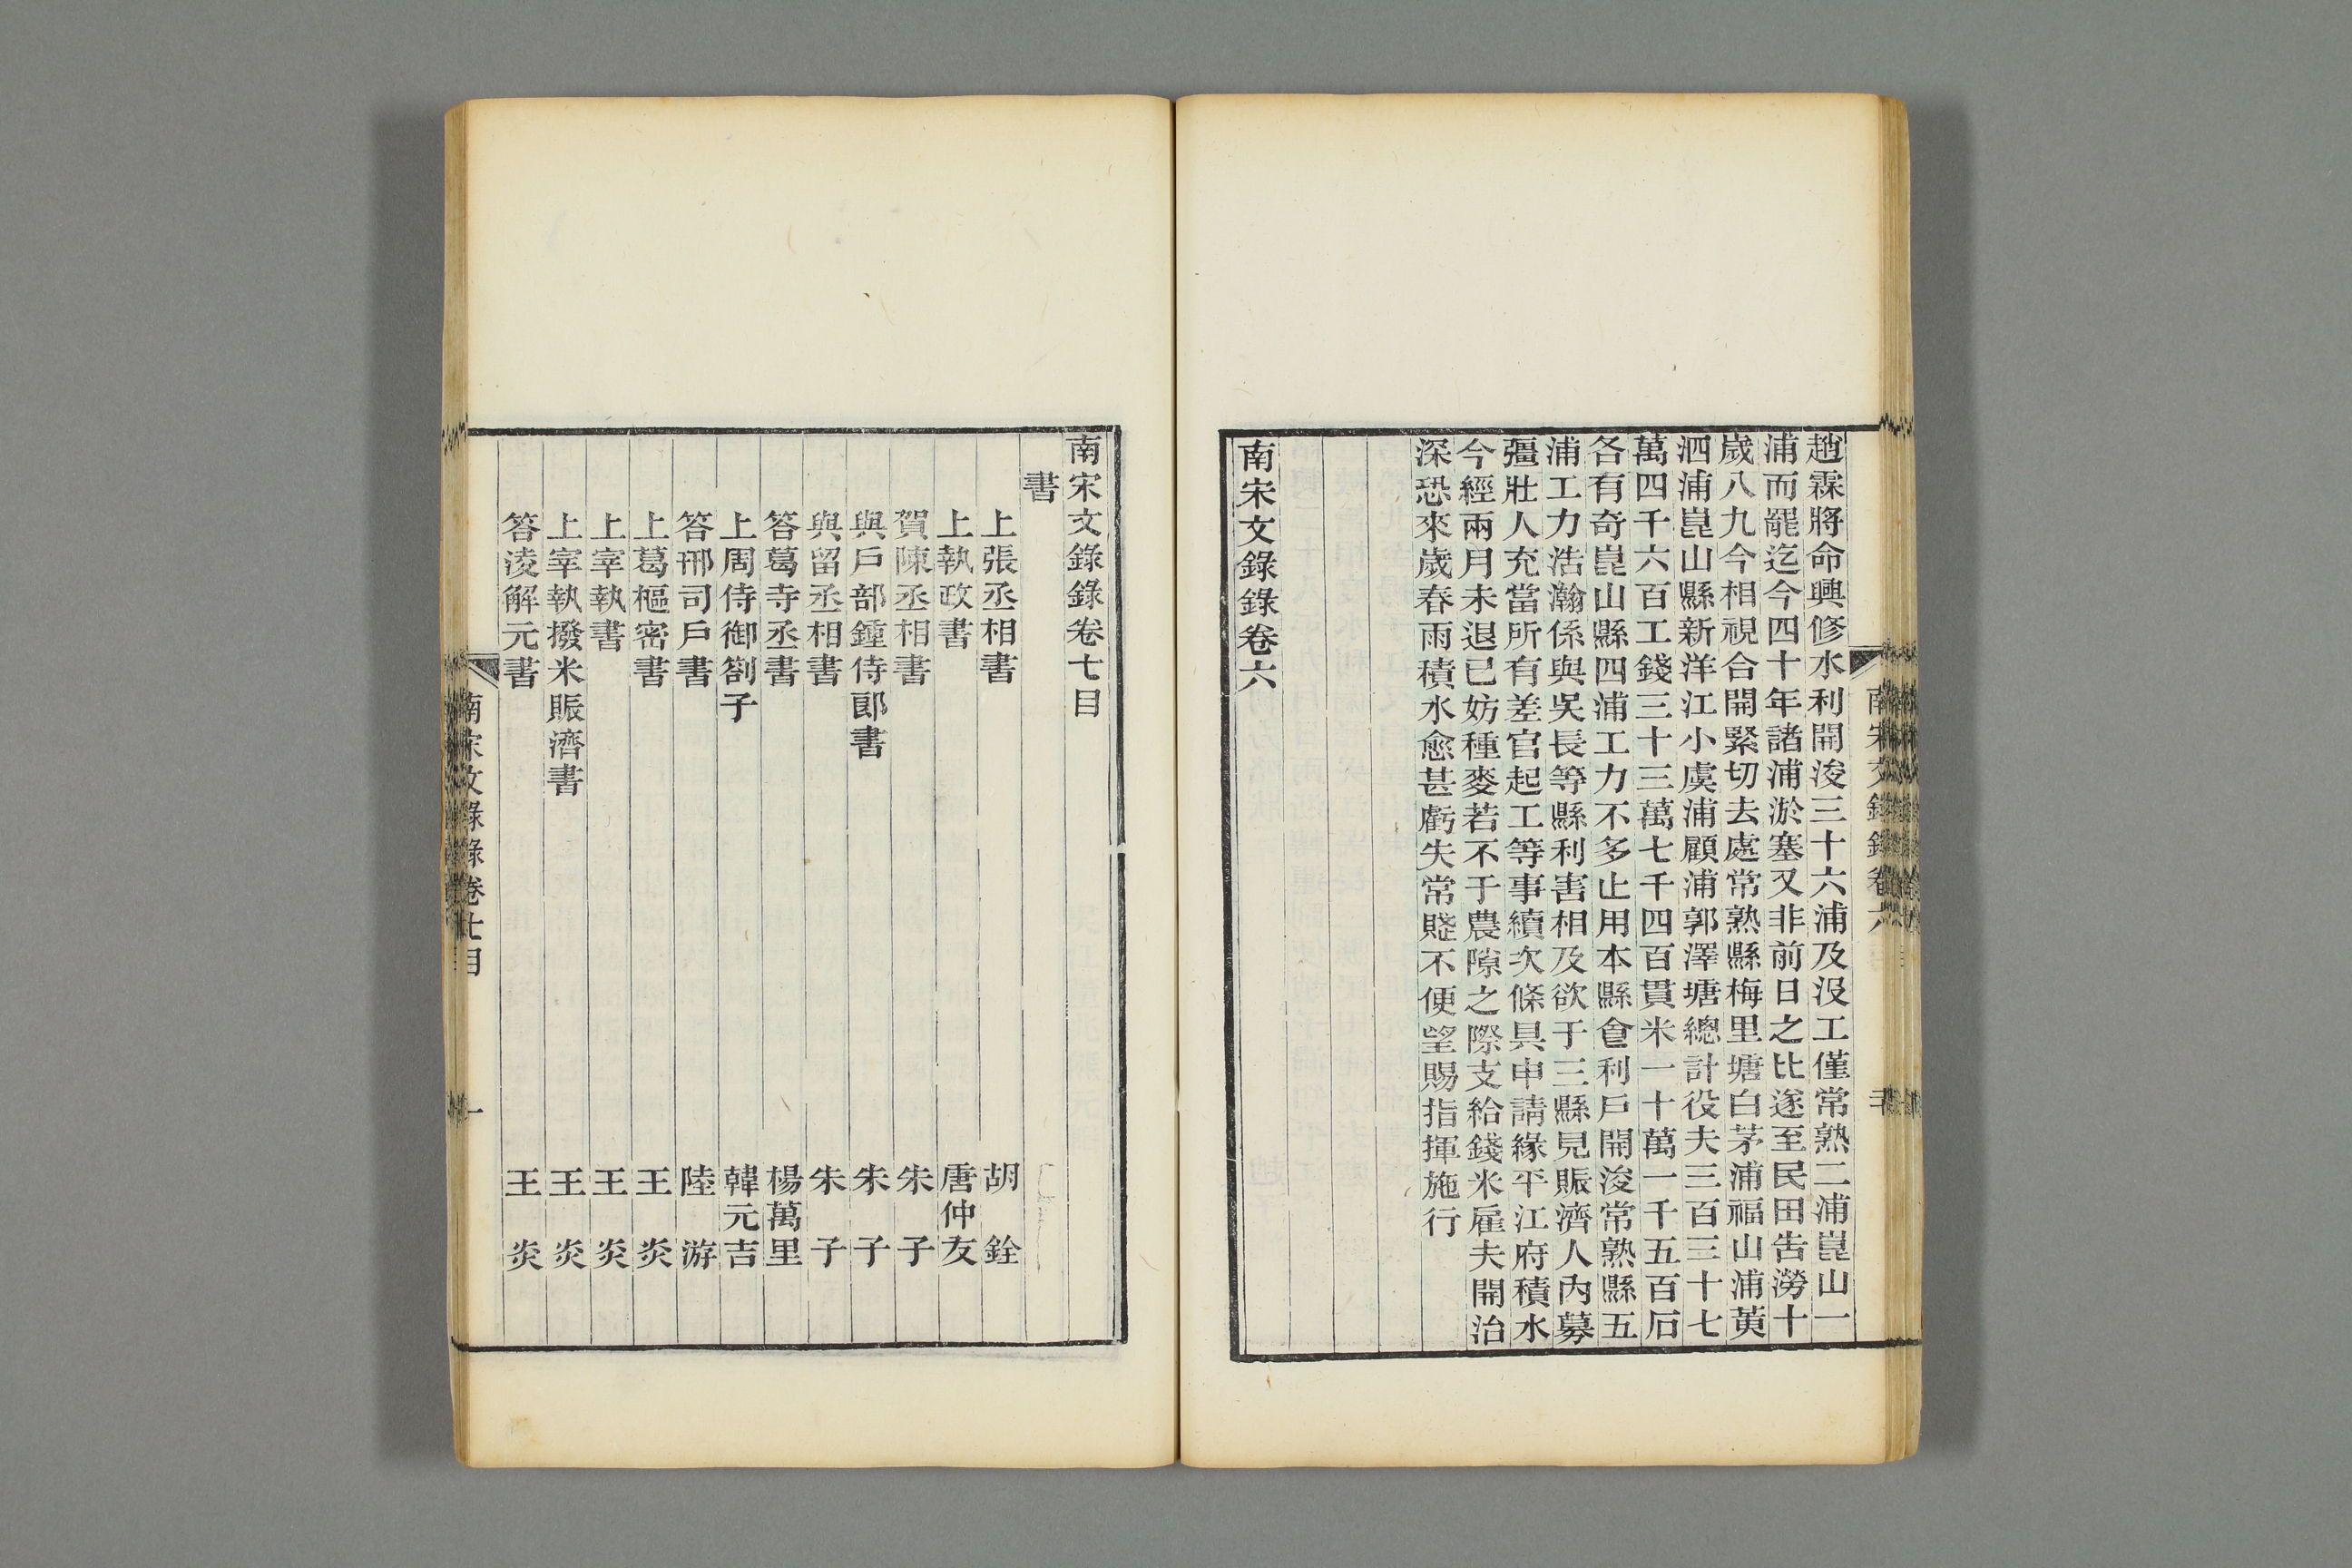 趙霖將命興修水利開浚三十六浦及沒工僅常熟二浦崑山一
浦而罷迄今四十年諸浦淤塞又非前日之比遂至民田告澇十
歲八九今相視合開緊切去處常熟縣梅里塘白茅浦福山浦黃
泗浦崑山縣新洋江小虞浦顧浦郭澤塘總計役夫三百三十七
萬四千六百工錢三十三萬七千四百貫米一十萬一千五百石
各有奇崑山縣四浦工力不多止用本縣食利戶開浚常熟縣五
浦工力浩瀚係與吳長等縣利害相及欲于三縣見賑濟人內募
彊壯人充當所有差官起工等事續次條具申請緣平江府積水
今經兩月未退已妨種麥若不于農隙之際支給錢米雇夫開治
深恐來歲春雨積水愈甚虧失常賦不便望賜指揮施行
南宋文錄錄卷六
南宋文錄錄卷七目
書
上張丞相書　胡銓
上執政書　唐仲友
賀陳丞相書　朱子
與戶部鍾侍郎書　朱子
與留丞相書　朱子
答葛寺丞書　楊萬里
上周侍御劄子　韓元吉
答邢司戶書　陸游
上葛樞密書　王炎
上宰執書　王炎
上宰執撥米賑濟書　王炎
答淩解元書　王炎
南宋文錄錄卷七目　一